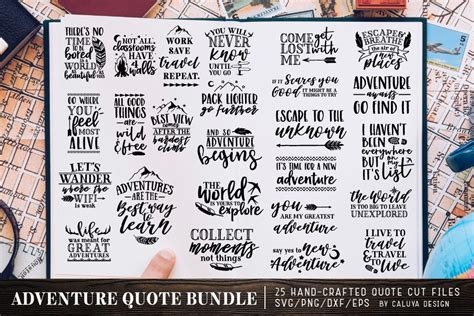 THERE'S NO
TIME
TO BE
Bored
IN A
WORLD
AS
beautiful
AS
THIS
NOT ALL
classrooms
HAVE
Walls
WORK
SAVE
travel
REPEAT.
YOU WILL
NEVER
know
UNTIL
YOU GO
COME
get
LOST
WITH
ME
ESCAPE &
BREATHE
the air of
new
places
GO WHERE
YOU
feel
MOST
ALIVE
ALL GOOD
THINGS
ARE
wild &
free
THE
BEST VIEW
comes
AFTER THE
hardest
climb
PACK LIGHTER
go further
If it Scares you
IT MIGHT BE A
Good
THING TO TRY
ADVENTURE
awaits
GO FIND IT
AND SO
ADVENTURE
begins
ESCAPE TO THE
unknown
I HAVEN'T
BEEN
everywhere
BUT
it's
ON MY
LIST
LET'S
WANDER
where the
WIFI
is weak
ADVENTURES
ARE THE
Best way to
learn
The
world
IS YOURS TO
explore
IT'S TIME FOR A NEW
adventure
YOU
ARE MY GREATEST
adventure
the world
IS TOO BIG TO LEAVE
UNEXPLORED
life
WAS MEANT FOR
GREAT
ADVENTURES
COLLECT
moments
not things
say yes to new
Adventure
I LIVE TO
travel &
TRAVEL
TO live
ADVENTURE QUOTE BUNDLE
25 HAND-CRAFTED QUOTE CUT FILES
SVG/PNG/DXF/EPS BY CALUYA DESIGN